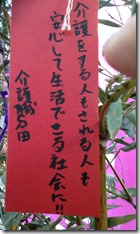 介護をする人もされる人も
安心して生活できる社会に!!
介護城る田